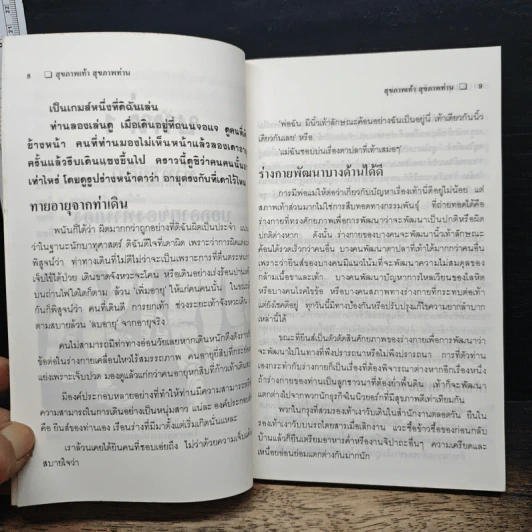 8 ❏ สุขภาพเท้า สุขภาพท่าน
เป็นเกมส์หนึ่งที่ดิฉันเล่น
ท่านลองเล่นดู เมื่อเดินอยู่ที่ถนนจอแจ ดูคนที่
ข้างหน้า คนที่ท่านมองไม่เห็นหน้าแล้วลองเดาอายุ
ครั้นแล้วรีบเดินแซงขึ้นไป คราวนี้ดูซิว่าคนคนนั้น
เท่าไหร่ โดยดูรูปร่างหน้าตาว่า อายุตรงกับที่เดาไว้ไหม
ทายอายุจากท่าเดิน
พนันก็ได้ว่า ผิดมากกว่าถูกอย่างที่ดิฉันผิดเป็นประจำ
ว่าในฐานะนักบาทุศาสตร์ ดิฉันดีใจที่เดาผิด เพราะว่าการผิด
พิสูจน์ว่า ท่าทางเดินที่ไม่ดีไม่ว่าจะเป็นเพราะการที่ตื่นตระหนก
เจ็บไข้ได้ป่วย เดินขาดจังหวะจะโคน หรือเดินอย่างเร่งร้อนปานเท้า
บนถ่านไฟใดใดก็ตาม ล้วน 'เพิ่มอายุ' ให้แก่คนคนนั้น
กันก็พิสูจน์ว่า คนที่เดินดี การยกเท้า ช่วงระยะเท้าจังหวะเดิน
ตามสบายล้วน 'ลบอายุ' จากอายุจริง
คนไม่สามารถมีท่าทางอ่อนวัยเลยหากเดินหนักตึงตังราว
ข้อต่อในร่างกายเคลื่อนไหวไร้สมรรถภาพ คนอายุยี่สิบที่กระย่อง
แย่งเพราะเจ็บปวด มองดูแล้วแก่กว่าคนอายุหกสิบที่ก้าวเท้าเดิน
มีองค์ประกอบหลายอย่างที่ทำให้ท่านมีความสามารถหรือ
ความสามารถในการเดินอย่างเป็นหนุ่มสาว แน่ละ องค์ประกอบ
คือ ยีนส์ของท่านเอง เรือนร่างที่มีมาตั้งแต่เริ่มเกิดนั่นแหละ
เราล้วนเคยได้ยินคนที่ชอบเอ่ยถึง ไม่ว่าด้วยความเจ็บแค้น
สบายใจว่า
สุขภาพเท้า สุขภาพท่าน ❏ 9
'พ่อฉัน มีนิ้วเท้าลักษณะค้อนอย่างฉันเป็นอยู่นี่ เท้าเดียวกันนิ้ว
เดียวกันเลย' หรือ
'แม่ฉันชอบบ่นเรื่องตาปลาที่เท้าเสมอๆ'
ร่างกายพัฒนาบางด้านได้ดี
การมีพ่อแม่ให้ต่อว่าเกี่ยวกับปัญหาเรื่องเท้านี้ดีอยู่ไม่น้อย แต่
สภาพเท้าส่วนมากไม่ใช่การสืบทอดทางกรรมพันธุ์ ที่ถ่ายทอดได้คือ
ร่างกายที่ทรงศักยภาพเพื่อการพัฒนาว่าจะพัฒนาเป็นปกติหรือผิด
ปกติต่างหาก ดังนั้น ร่างกายของบางคนจะพัฒนานิ้วเท้าลักษณะ
ค้อนได้รวดเร็วกว่าคนอื่น บางคนพัฒนาตาปลาที่เท้าได้มากกว่าคนอื่น
เพราะว่ายีนส์ของบางคนมีแนวโน้มที่จะพัฒนาความไม่สมดุลของ
กล้ามเนื้อขาและเท้า บางคนพัฒนาปัญหาการไหลเวียนของโลหิต
หรือบางคนโรคไขข้อ หรือบางคนสภาพทางร่างกายที่กระทบต่อเท้า
แต่ยังโชคดีอยู่ ทุกวันนี้มีทางป้องกันหรือปรับปรุงแก้ไขความยากลำบาก
เหล่านี้ได้
ขณะที่ยีนส์เป็นตัวตัดสินศักยภาพของร่างกายเพื่อการพัฒนาว่า
จะพัฒนาไปในทางที่พึงปรารถนาหรือไม่พึงปรารถนา การที่ตัวท่าน
เองกระทำกับร่างกายก็เป็นเรื่องที่ต้องพิจารณาต่างหากอีกเรื่องหนึ่ง
ถ้าร่างกายของท่านเป็นลูกชาวนาที่ต้องย่ำพื้นดิน เท้าก็จะพัฒนา
แตกต่างไปจากพวกนักธุรกิจในนิวยอร์กที่มีสุขภาพดีเท่าเทียมกัน
พวกในกรุงที่สวมรองเท้างับเดินในสำนักงานตลอดวัน ยืนใน
รองเท้างับบนรถโดยสารเมื่อเลิกงาน แวะซื้อข้าวซื้อของก่อนกลับ
บ้านแล้วก็ยืนเตรียมอาหารค่ำหรืองานจิปาถะอื่นๆ ความเครียดและ
เหนื่อยอ่อนย่อมแตกต่างกันมากนัก